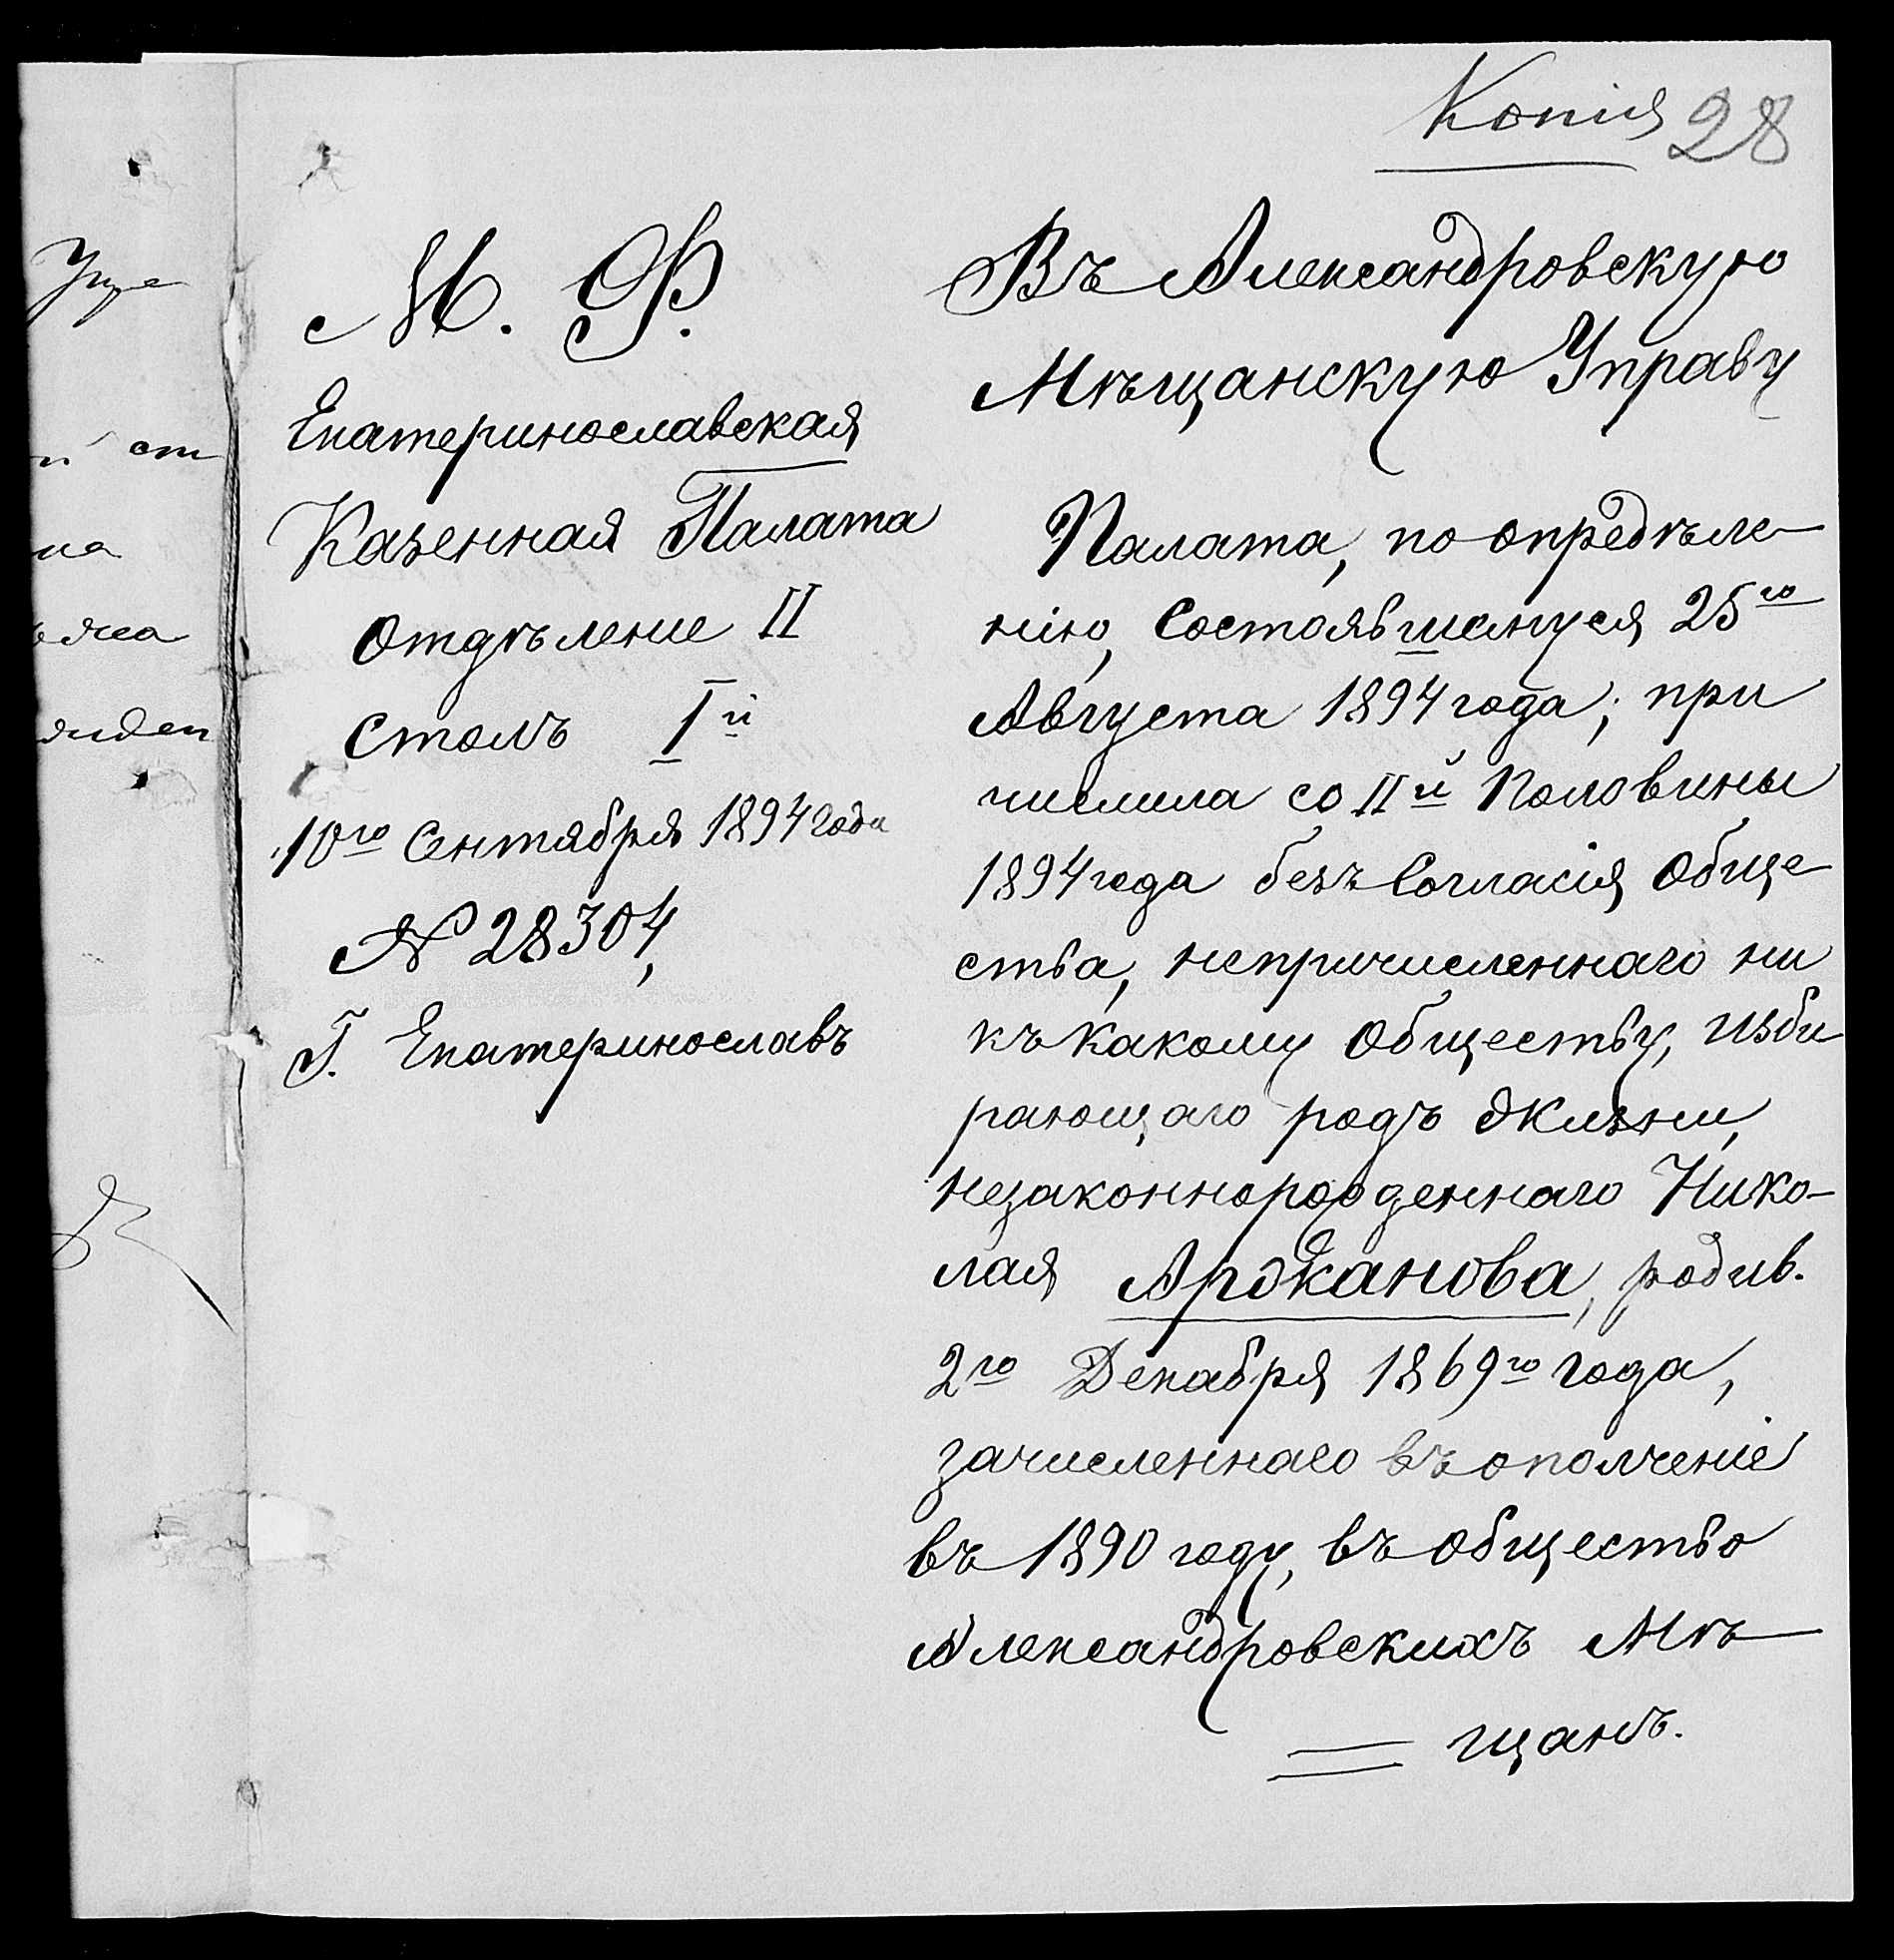 Копія 28
М. Ф.
Екатеринославская
Казенная Палата
Отдѣленіе II
Столъ I й
10го Сентября 1894 года
№ 28304,
Г. Екатеринославъ
Въ Александровскую
Мѣщанскую Управу
Палата, по опредѣле-
нію, Состоявшемуся 25го
Августа 1894 года, при
числила со II й Половины
1894 года безъ Согласія Обще-
ства, непричисленнаго ни
къ какому Обществу, изби
рающаго родъ жизни,
незаконнорожденнаго Нико-
лая Арджанова, родив.
2го Декабря 1869го года,
зачисленнаго въ ополченіе
въ 1890 году, въ общество
Александровскихъ Мѣ-
щанъ.